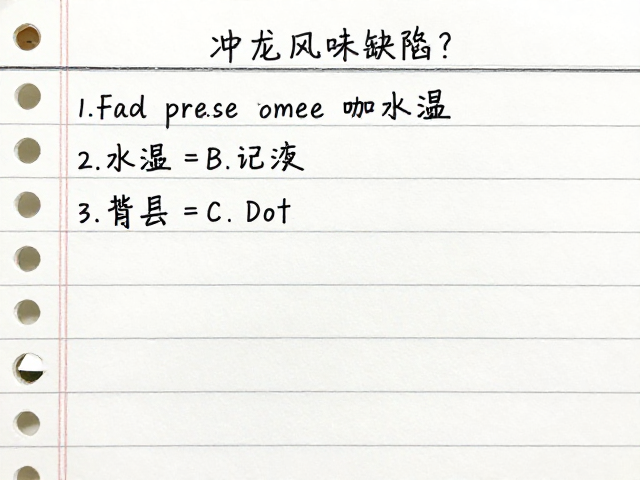 冲龙风味缺陷?
1.Fad prese omee 咖水温
2.水温 =B.记液
3.背县 =C. Dot